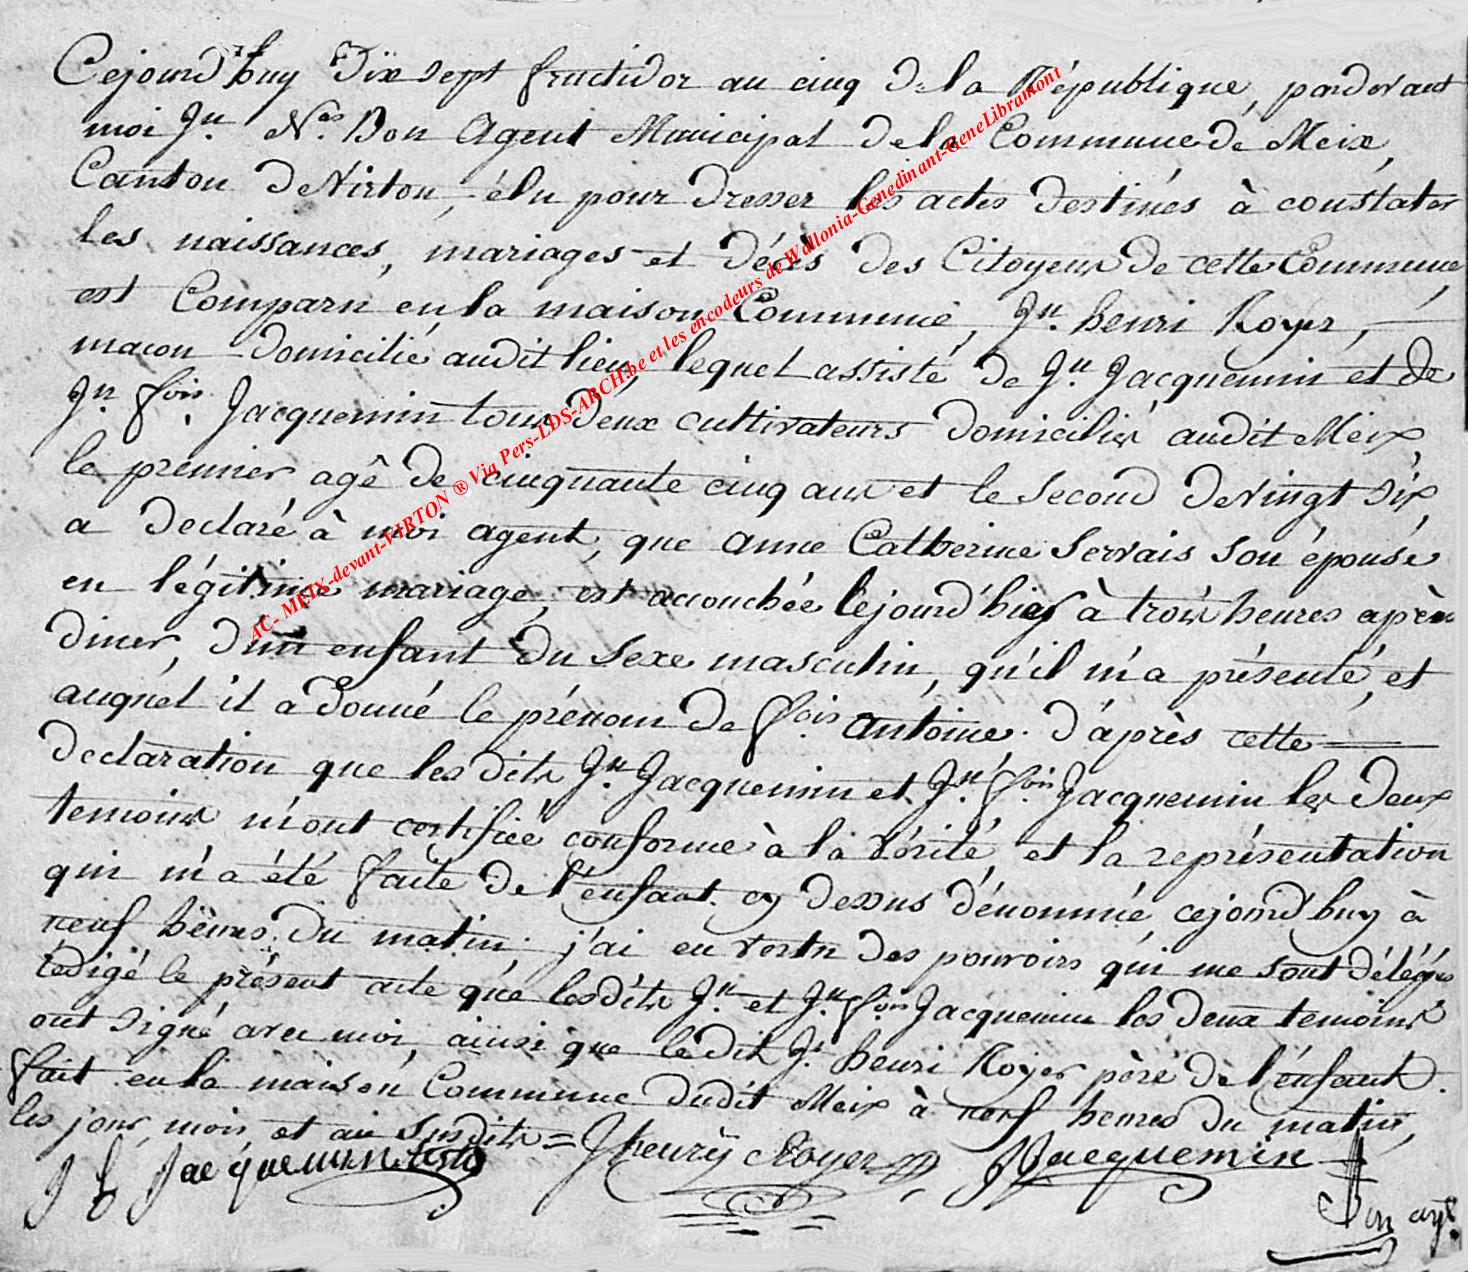 Cejourd'huy Dix sept fructidor an cinq de la République, pardevant
moi Jn. Nas. Bon Agent Municipal de la Commune de Meix,
Canton de Virton, élu pour dresser les actes destinés à constater
les naissances, mariages et décès des Citoyens de cette Commune
est Comparu en la maison Commune, Jn. henri Royer,
macon domicilié audit lieu, lequel assisté de Jn. Jacquemin et de
Jn. fois. Jacquemin tous deux cultivateurs domiciliés audit Meix,
le premier agé de cinquante cinq ans et le second de vingt six,
a declaré à moi agent, que anne Catherine Servais son épouse
en légitime mariage, est accouchée lejourd'hier à trois heures après
diner, d'un enfant du sexe masculin, qu'il m'a présenté, et
auquel il a donné le prénom de fois. antoine. d'après cette
declaration que les dits Jn. Jacquemin et Jn. fois. Jacquemin les deux
temoins m'ont certifiée conforme à la vérité, et la représentation
qui m'a été faite de l'enfant cy dessus dénommé, cejourd'huy à
neuf heures du matin, j'ai en vertu des pouvoirs qui me sont délégués
rédigé le présent acte que lesdits Jn. et Jn. fois Jacquemin les deux temoins
ont signé avec moi, ainsi que ledit Jn. henri Royer père de l'enfant.
fait en la maison Commune dudit Meix à neuf heures du matin,
les jour, mois et an susdits =
J f Jacquemin Jhenrÿ Royer JJacquemin
Bon agt.
AC- MEIX-devant-VIRTON ® Via Pers-LDS-ARCH.be et les encodeurs de Wallonia-Genedinant-GeneLibramont